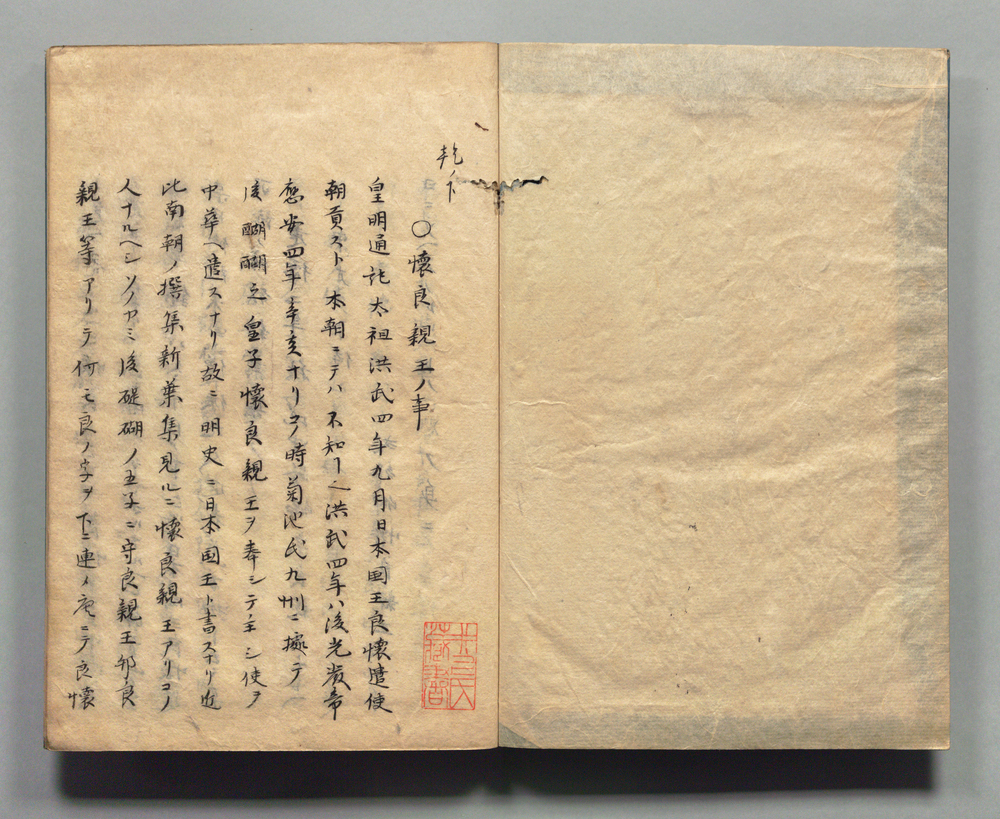 乾ノ下
○懐良親王ノ事
皇明通託太祖洪武四年九月日本国王良懐遣使
朝貢スト本朝ニテハ不知ヿ也洪武四年ハ後光厳帝
應安四年辛亥ナリコノ時菊池氏九州ニ據テ
後醐醐之皇子懐良親王ヲ奉シテ主シ使ヲ
中華ヘ遣スナリ故ニ明史ニ日本国王ト書スナリ近
比南朝ノ撰集新葉集見ルニ懐良親王アリコノ
人ナルヘシソノアミ後醍醐ノ五子ニ守良親王
親王等アリテ何モ良ノ字ヲ下ニ連メ ニテ良懐